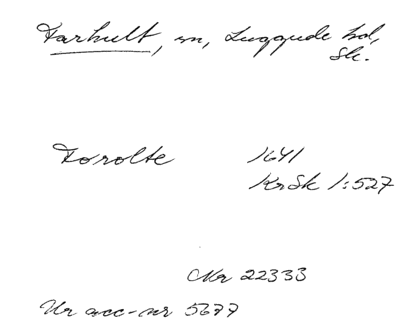 Farhult, sn, Luggude hd,
Sk.
Forolte 1641
KrSk 1:527
Nr 22333
Ur acc-nr 5677